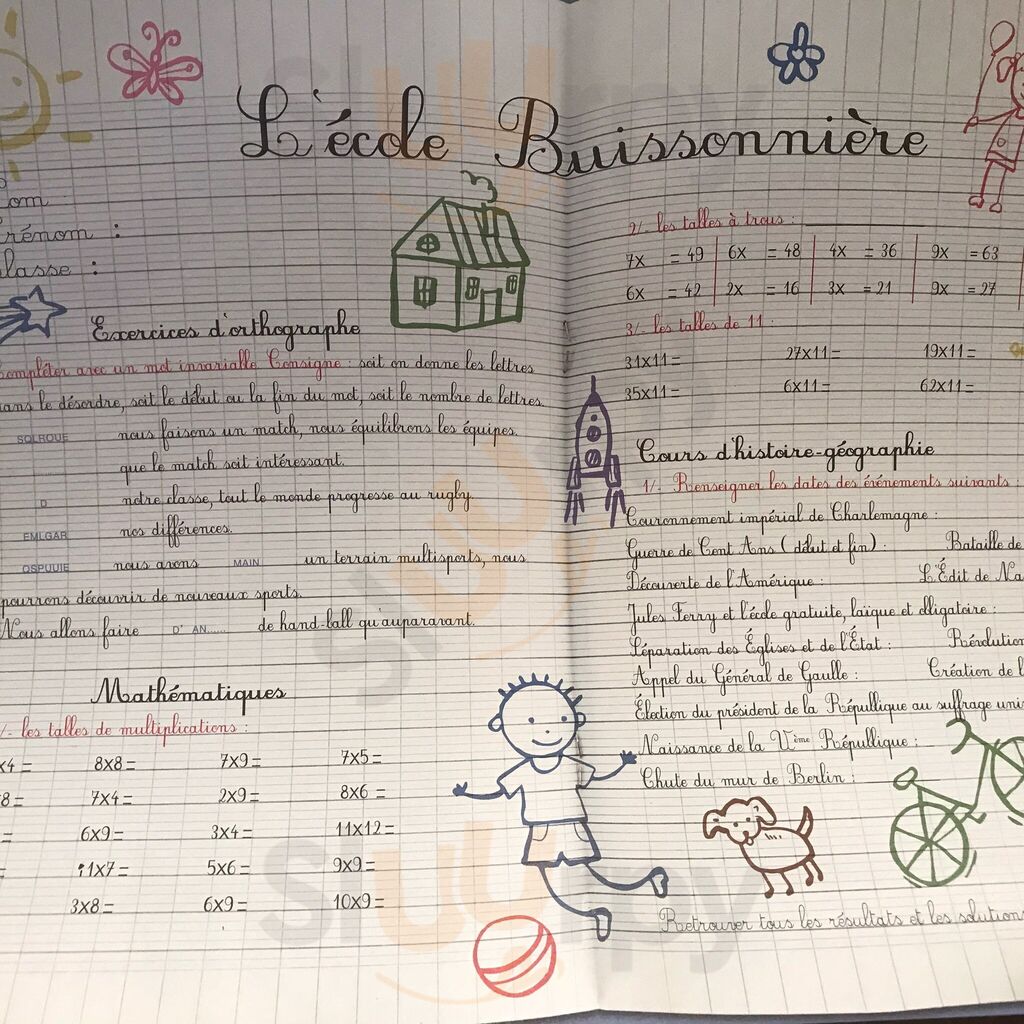 L'école Buissonnière
om
rénom :
lasse :
Exercices d'orthographe
Compléter avec un mot invariable Consigne : soit on donne les lettres
ans le désordre, soit le début ou la fin du mot, soit le nombre de lettres.
SQLROUE nous faisons un match, nous équilibrons les équipes.
que le match soit intéressant.
D notre classe, tout le monde progresse au rugby.
EMLGAR nos différences.
OSPUUIE nous avons MAIN un terrain multisports, nous
pourrons découvrir de nouveaux sports.
Nous allons faire D' AN...... de hand-ball qu'auparavant.
Mathématiques
/- les tables de multiplications :
x4= 8x8= 7x9= 7x5=
x8= 7x4= 2x9= 8x6=
= 6x9= 3x4= 11x12=
= 11x7= 5x6= 9x9=
3x8= 6x9= 10x9=
2/- les tables à trous :
7x =49 6x =48 4x =36 9x =63
6x =42 2x =16 3x =21 9x =27
3/- les tables de 11 :
31x11= 27x11= 19x11=
35x11= 6x11= 62x11=
Cours d'histoire-géographie
1/- Renseigner les dates des événements suivants :
Couronnement impérial de Charlemagne :
Guerre de Cent Ans ( début et fin) : Bataille de
Découverte de l'Amérique : L'Édit de Na
Jules Ferry et l'école gratuite, laïque et obligatoire :
Séparation des Églises et de l'État : Révolution
Appel du Général de Gaulle : Création de l
Élection du président de la République au suffrage uni
Naissance de la Vème République :
Chute du mur de Berlin :
Retrouver tous les résultats et les solution
sluurpy
sluurpy
sluurpy